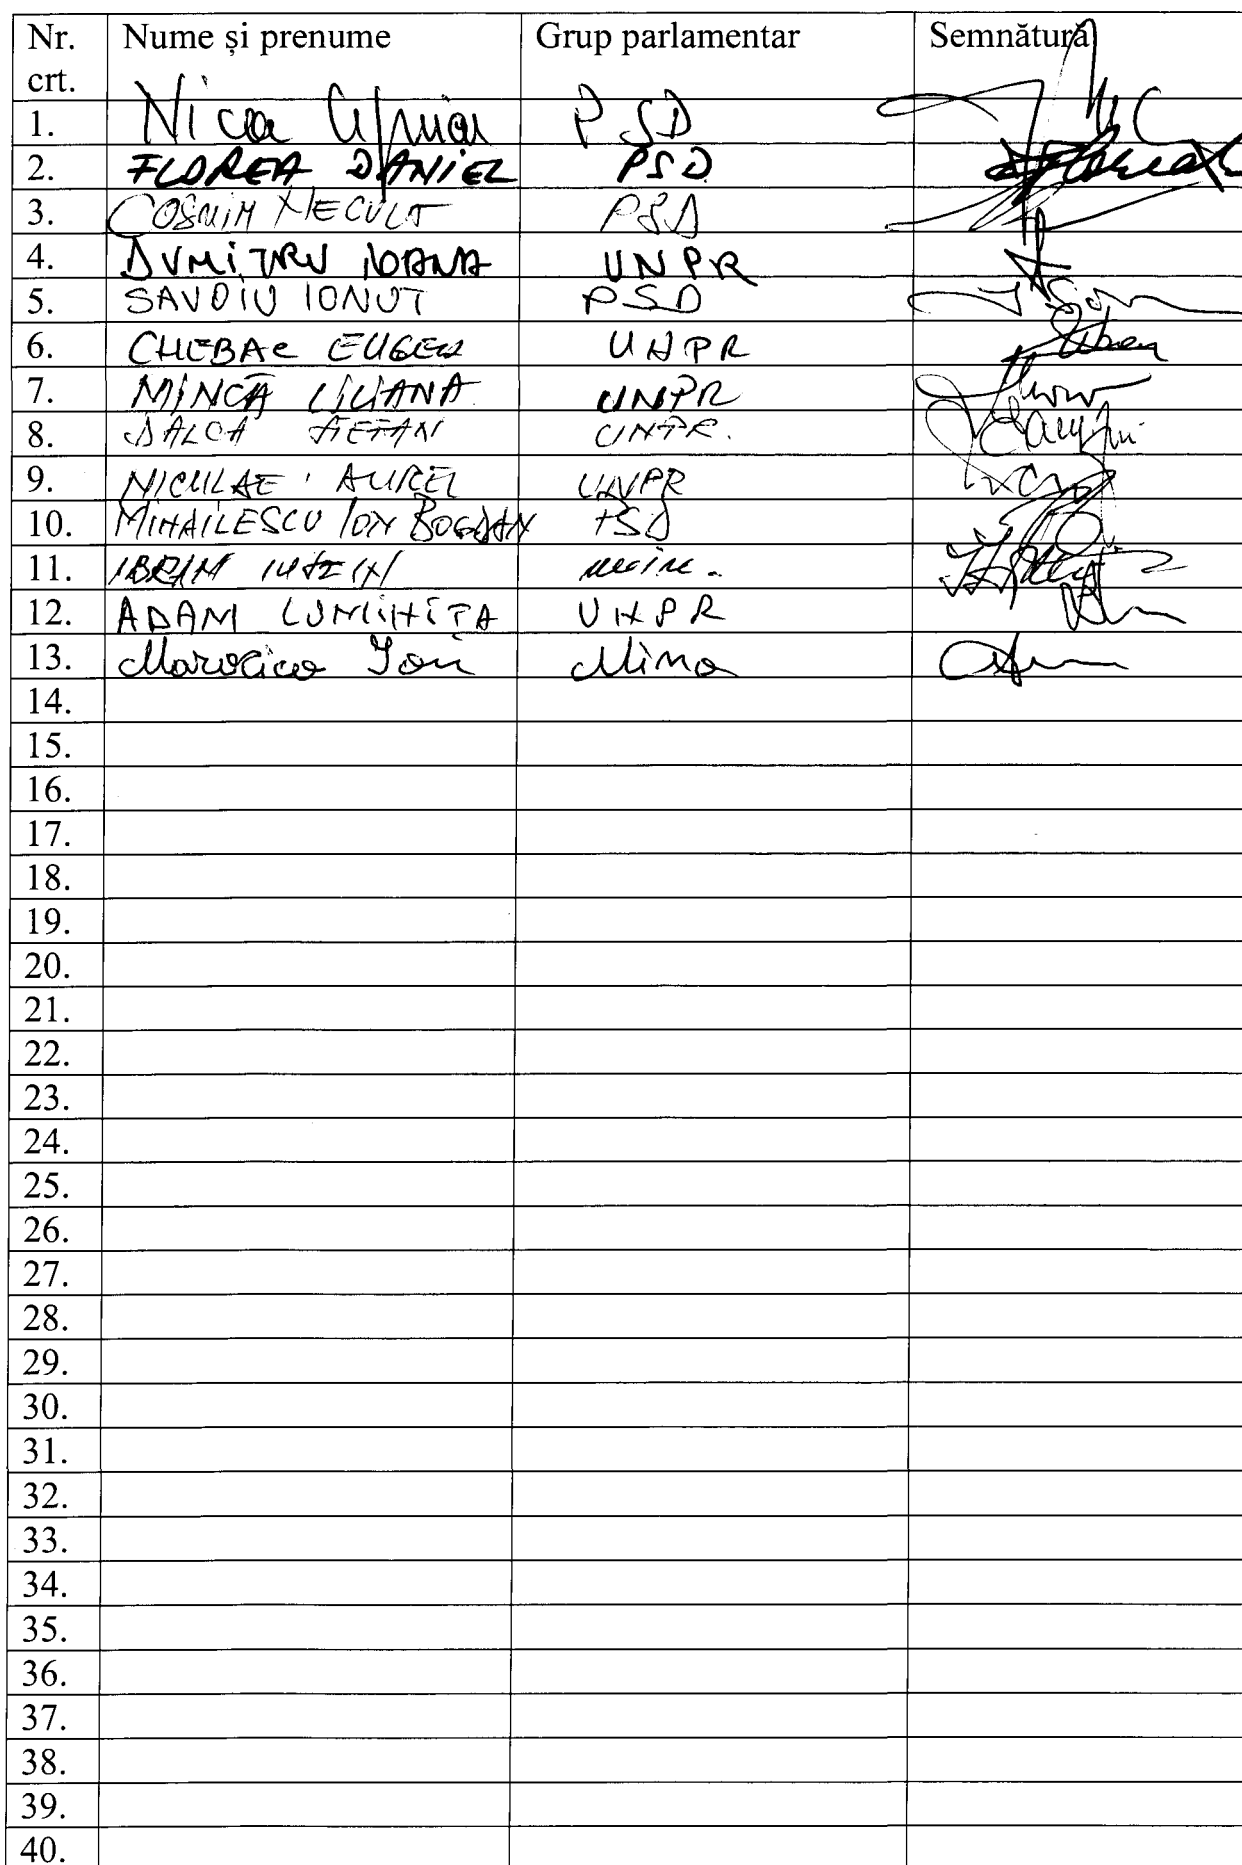 Nr. crt. Nume și prenume Grup parlamentar Semnătură
1. Nica PSD
2. FLOREA DANIEL PSD
3. COSMIN NECULA PSD
4. DUMITRU IOANA UNPR
5. SAVOIU IONUT PSD
6. CHEBAC EUGEN UNPR
7. MINCĂ LILIANA UNPR
8. DALCĂ ȘTEFAN UNPR.
9. NICULAE AUREL UNPR
10. MIHAILESCU ION BOGDAN PSD
11. IBRAM
12. ADAM LUMINIȚA UNPR
13. Marocico Ion Mino
14.
15.
16.
17.
18.
19.
20.
21.
22.
23.
24.
25.
26.
27.
28.
29.
30.
31.
32.
33.
34.
35.
36.
37.
38.
39.
40.